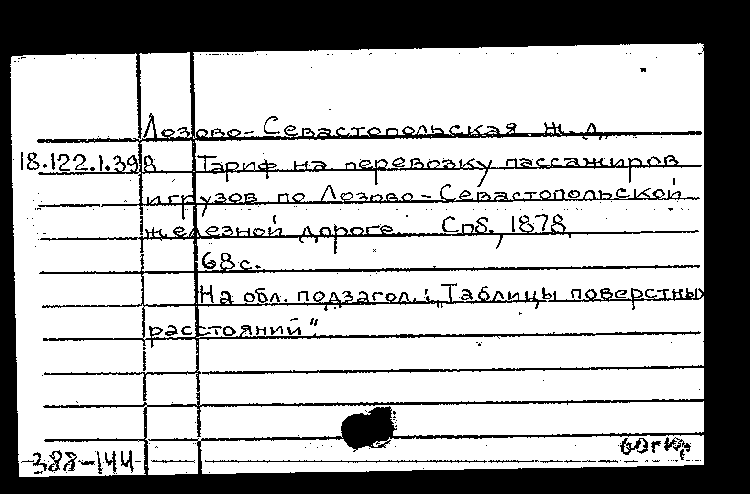 Лозово-Севастопольская ж.д.
18.122.1.398 Тариф на перевозку пассажиров
и грузов по Лозово-Севастопольской
железной дороге. Спб., 1878.
68 с.
На обл. подзагол.: „Таблицы поверстных
расстояний“.
388-144